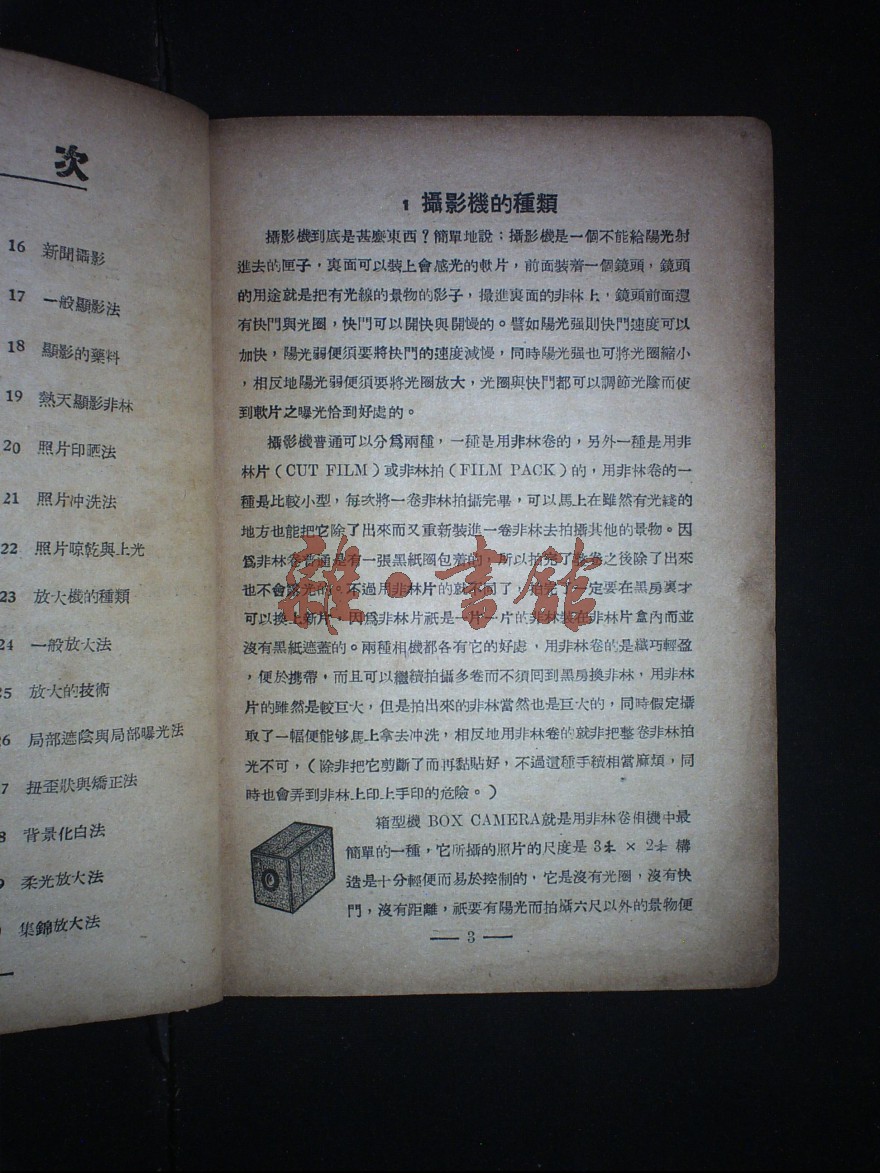 次
16 新聞攝影
17 一般顯影法
18 顯影的藥料
19 熱天顯影非林
20 照片印晒法
21 照片冲洗法
22 照片晾乾與上光
23 放大機的種類
24 一般放大法
25 放大的技術
26 局部遮陰與局部曝光法
7 扭歪狀與矯正法
8 背景化白法
9 柔光放大法
集錦放大法
1 攝影機的種類
攝影機到底是甚麼東西?簡單地說;攝影機是一個不能給陽光射
進去的匣子,裏面可以裝上會感光的軟片,前面裝着一個鏡頭,鏡頭
的用途就是把有光線的景物的影子,撮進裏面的非林上,鏡頭前面還
有快門與光圈,快門可以開快與開慢的。譬如陽光强則快門速度可以
加快,陽光弱便須要將快門的速度減慢,同時陽光强也可將光圈縮小
,相反地陽光弱便須要將光圈放大,光圈與快門都可以調節光陰而使
到軟片之曝光恰到好處的。
攝影機普通可以分爲兩種,一種是用非林卷的,另外一種是用非
林片(CUT FILM)或非林拍(FILM PACK)的,用非林卷的一
種是比較小型,每次將一卷非林拍攝完畢,可以馬上在雖然有光綫的
地方也能把它除了出來而又重新裝進一卷非林去拍攝其他的景物。因
爲非林卷普通是有一張黑紙圈包着的,所以拍完了整卷之後除了出來
也不會露光的。不過用非林片的就不同了,拍完了一定要在黑房裏才
可以換上新片,因爲非林片祇是一片一片的非林裝在非林片盒內而並
沒有黑紙遮蓋的。兩種相機都各有它的好處,用非林卷的是纖巧輕盈
,便於携帶,而且可以繼續拍攝多卷而不須囘到黑房換非林,用非林
片的雖然是較巨大,但是拍出來的非林當然也是巨大的,同時假定攝
取了一幅便能够馬上拿去冲洗,相反地用非林卷的就非把整卷非林拍
光不可,(除非把它剪斷了而再黏貼好,不過這種手續相當麻煩,同
時也會弄到非林上印上手印的危險。)
箱型機 BOX CAMERA就是用非林卷相機中最
簡單的一種,它所攝的照片的尺度是 3 × 2 構
造是十分輕便而易於控制的,它是沒有光圈,沒有快
門,沒有距離,祇要有陽光而拍攝六尺以外的景物便
— 3 —
雜·書館